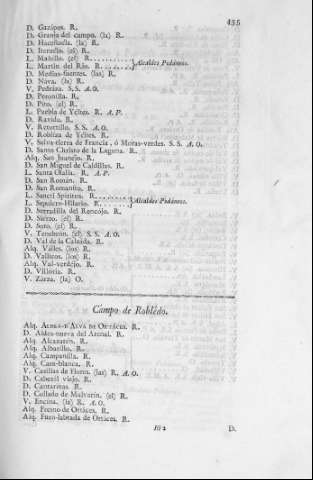 435
D. Gazápos. R.
D. Granja del campo. (la) R.
D. Hacesluda. (la) R.
D. (el) R.
L. Maíllo. (el) R.
L. Martin del Rio. R. Alcaldes Pedáneos.
D. Medias-fuentes. (las) R.
D. Náva. (la) R.
V. Pedráza. S.S. A.O.
D. Peronilla. R.
D. Pito. (el) R.
L. Puebla de Yéltes. R. A.P.
D. Ravida. R.
V. Retortillo. S.S. A.O.
D. Robliza de Yéltes. R.
V. Selva-tierra de Francia, ó Moras-verdes. S.S. A.O.
D. Santo Christo de la Laguna. R.
Alq. San Juanejo. R.
D. San Miguel de Caldillas. R.
L. Santa Olalla. R. A.P.
D. San Román. R.
D. San Romanito. R.
L. Sancti Spiritus. R.
L. Sepúlcro-Hilario. R. Alcaldes Pedáneos.
D. Serradilla del Rencojo. R.
D. Sierzo. (el) R.
D. Soto. (el) R.
V. Tenebrón. (el) S.S. A.O.
D. Val de la Calzáda. R.
Alq. Válles. (los) R.
D. Vallícos. (los) R.
Alq. Val-verdéjo. R.
D. Villória. R.
V. Zarza. (la) O.
Cámpo de Roblédo.
Alq. ALDEA-D'ALVA DE ORTÁCES. R.
D. Aldea-nueva del Arenal. R.
Alq. Alcazarén. R.
Alq. Albarillo. R.
Alq. Campanilla. R.
Alq. Cara-blanca. R.
V. Casíllas de Flores. (las) R. A.O.
D. Cabezál viejo. R.
D. Cantarínas. R.
D. Collado de Malvarin. (el) R.
V. Encína. (la) R. A.O.
Alq. Fresno de Ortáces. R.
Alq. Fuen-labrada de Ortáces. R.
Iii 2 D.